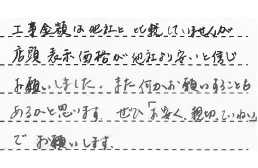 工事金額は他社と比較していませんが
店頭表示価格が他社より安いと信じ
お願いしました。また何かお願いすることも
あるかと思います。ぜひ「お安く、親切、ていねい」
でお願いします。